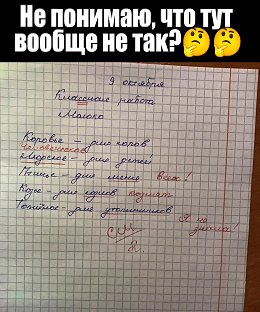 Не понимаю, что тут
вообще не так?🤔🤔
9 октября
Классная работа
Молоко
Коровье – для коров
Человеческое
Мюрское – для детей
Птичье – для меня всех!
Козье – для козлов козлят
Топлёное – для утопленников Я не
знала!
См